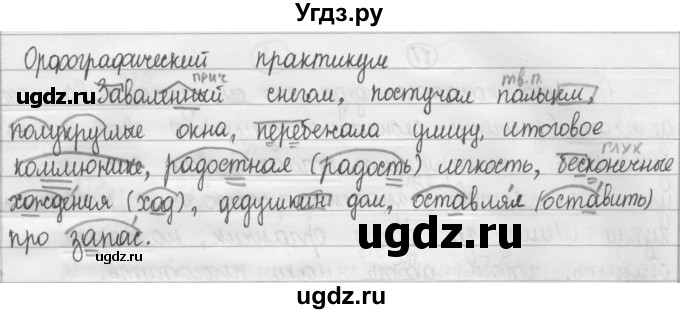 Угдз.ру
Орфографический практикум
прич
тв.п.
ugdz.ru Заваленный снегом, постучал пальцем,
полукруглые окна, перебежала улицу, итоговое
глух
коммюнике, радостная (радость) легкость, бесконечные
хождения (ход), дедушкин дом, оставлял (оставить)
про запас.
ugdz.ru
ugdz.ru
ugdz.ru